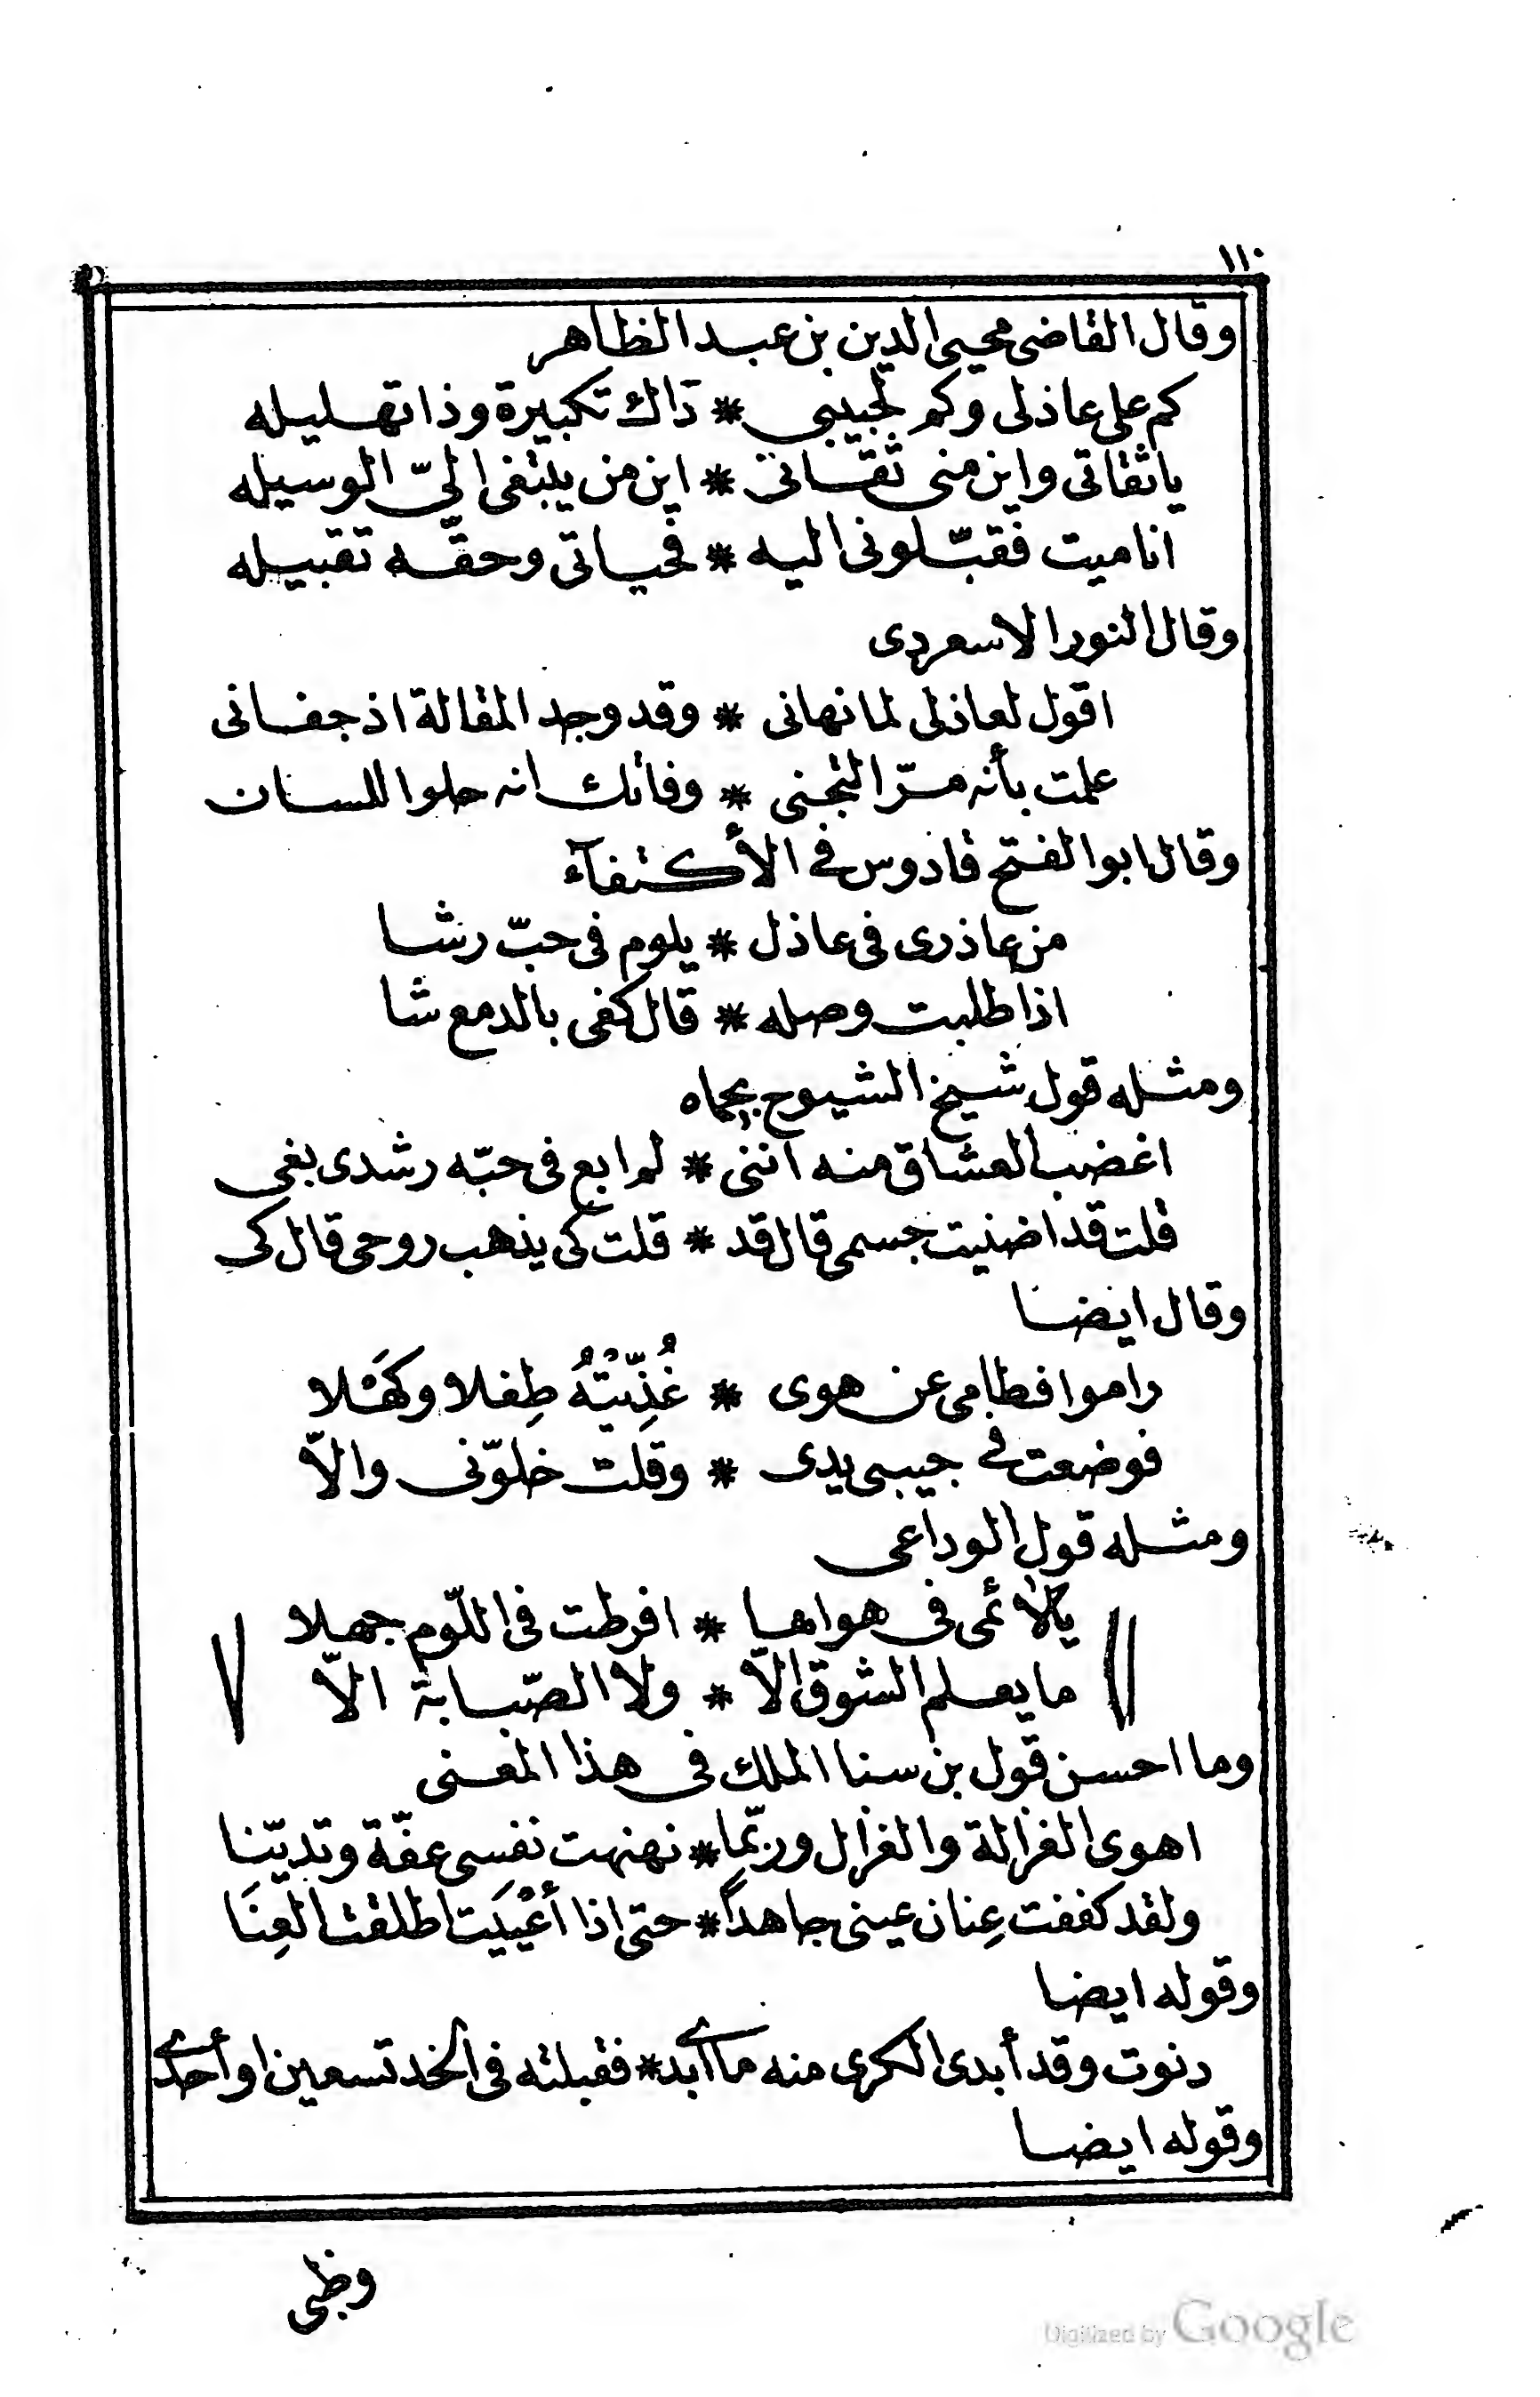 ١١٠
وقال القاضى محيى الدين بن عبد الظاهر
كم على عاذلى وكم لحبيبى * ذاك تكبيرة وذا تهليله
يا ثقاتى واين منى ثقاتى * اين من يبتغى الىّ الوسيله
انا ميت فقبّلونى اليه * فحياتى وحقّه تقبيله
وقال النور الاسعردى
اقول لعاذلى لما نهانى * وقد وجد المقالة اذ جفانى
علمت بأنه مرّ التجنى * وفاتك انه حلو اللسان
وقال ابو الفتح قادوس فى الأكتفآء
من عاذرى فى عاذل * يلوم فى حبّ رشا
اذا طلبت وصله * قال كفى بالدمع شا
ومثله قول شيخ الشيوخ بحماه
اغضب العشاق منه اننى * لم ابع فى حبّه رشدى بغى
قلت قد اضنيت جسمى قال قد * قلت كى يذهب روحى قال كى
وقال ايضا
راموا فطامى عن هوى * غُذِّيْتُهُ طِفلا وكَهْلا
فوضعت فى جيبى يدى * وقلت خلوّنى والاّ
ومثله قول الوداعى
يالائمى فى هواها * افرطت فى اللّوم جهلا
ما يعلم الشوق الاّ * ولا الصّبابة الاّ
وما احسن قول بن سنا الملك فى هذا المعنى
اهوى الغزالة والغزال وربّما * نهنهت نفسى عفّة وتديّنا
ولقد كففت عِنان عينى جاهداً * حتى اذا أَعْيَيَت اطلقت العِنَا
وقوله ايضا
دنوت وقد أبدى الكرى منه ما أبدى * فقبلته فى الخد تسعين او أحدى
وقوله ايضا
وظبى
Digitized by Google